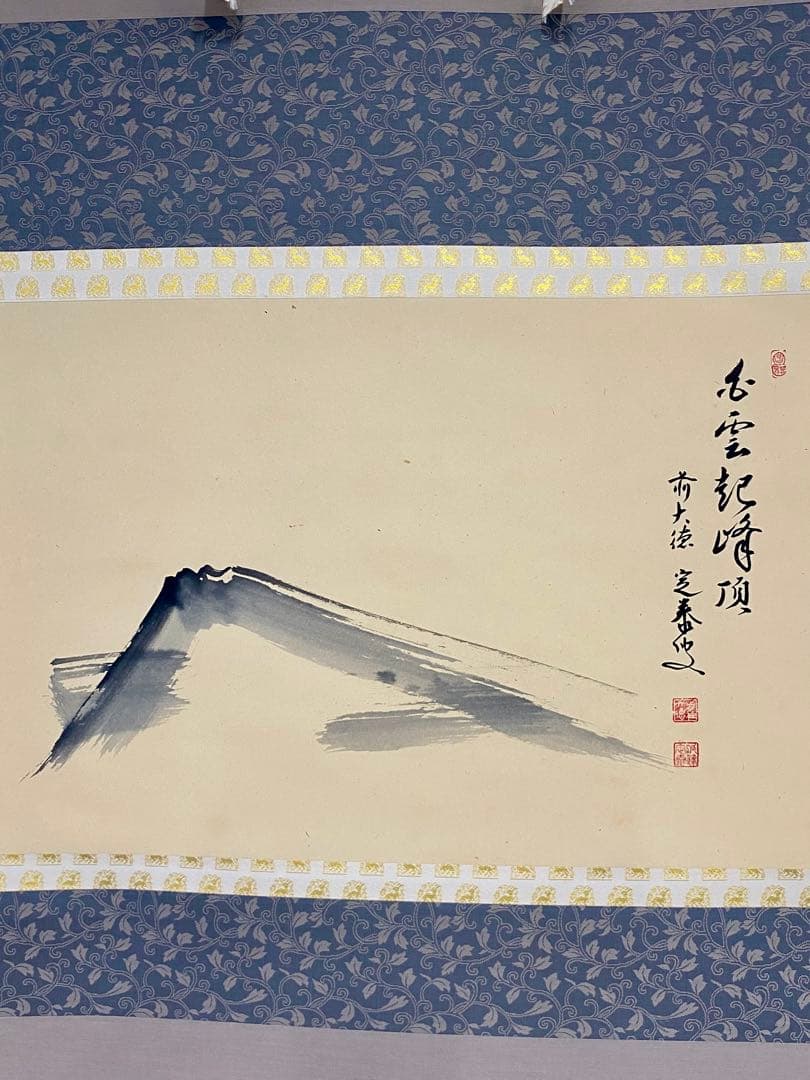 白雲起峰頂
前大徳 定泰叟